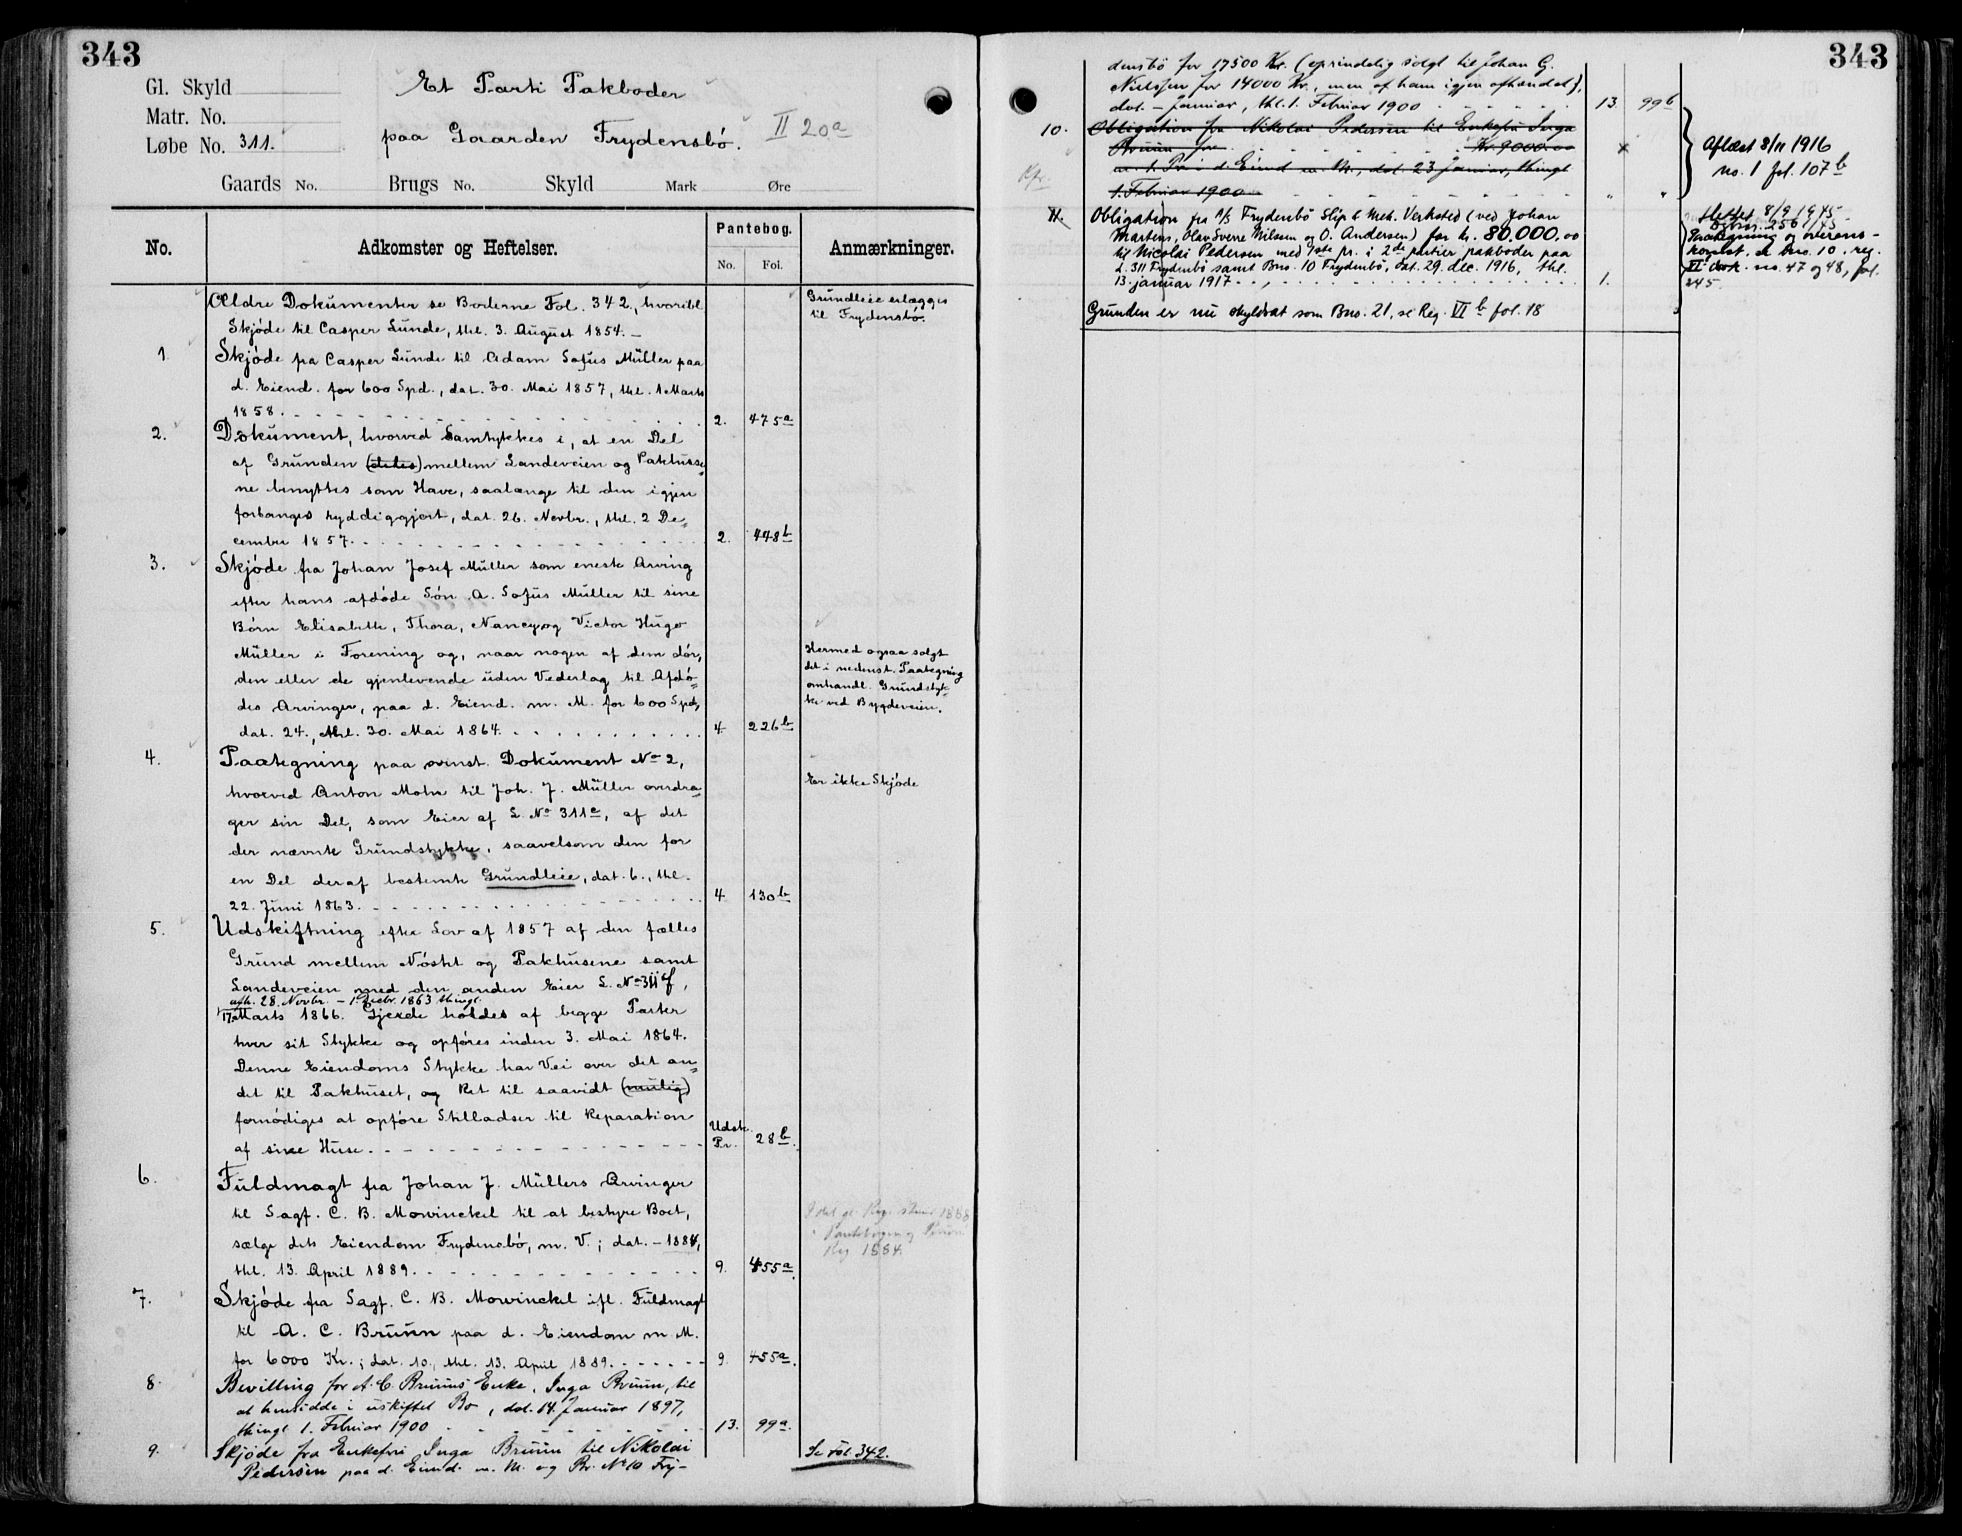 343
Gl. Skyld
Matr. No.
Løbe No. 311.
Et Parti Pakboder
paa Gaarden Frydensbö.
II 20a
Gaards No. Brugs No. Skyld Mark Øre
No. Adkomster og Heftelser. Pantebog. Anmærkninger.
No. Fol.
Ældre Dokumenter se Boderne Fol. 342, hvoribl.
Skjöde til Casper Lunde, thl. 3. August 1854.
Grundleie erlægges
til Frydensbö.
1. Skjöde fra Casper Lunde til Adam Sofus Müller paa
d. Eiend. for 600 Spd., dat. 30. Mai 1857, thl. 1 Marts
1858. 2. 475a
2. Dokument, hvorved Samtykkes i, at en Del
af Grunden (deles) mellem Landeveien og Pakhusse„
ne benyttes som Have, saalænge til den igjen
forlanges ryddiggjort, dat. 26. Novbr., thl. 2 De„
cember 1857. 2. 448b
3. Skjöde fra Johan Josef Müller som eneste Arving
efter hans afdöde Sön A. Sofus Müller til sine
Börn Elisabeth, Thora, Nancy og Victor Hugo
Müller i Forening og, naar nogen af dem dör,
den eller de gjenlevende uden Vederlag til Afdö„
des Arvinger, paa d. Eiend. m. M. for 600 Spd,
dat. 24., thl. 30. Mai 1864. 4 226b
Hermed ogsaa solgt
det i nedenst. Paategning
omhandl. Grundstyk„
ke ved Bygdeveien.
4. Paategning paa ovenst. Dokument No 2,
hvorved Anton Mohr til Joh. J. Müller overdra„
ger sin Del, som Eier af L. No 311a, af det
der nævnte Grundstykke, saavelsom den for
en Del deraf bestemte Grundleie, dat. 6., thl.
22. Juni 1863. 4 130b
Er ikke Skjöde
5. Udskiftning efter Lov af 1857 af den fælles
Grund mellem Nöstet og Pakhusene samt
Landeveien med den anden Eier L. No 311f,
afh. 28. Novbr. - 1. Decbr. 1863 thingl.
17. Marts 1866. Gjerde holdes af begge Parter
hver sit Stykke og opföres inden 3. Mai 1864.
Denne Eiendoms Stykke har Vei over det an„
det til Pakhuset, og Ret til saavidt (mulig)
fornödiges at opföre Stilladser til Reparation
af sine Huse. Udsk. Pr. 28b.
6. Fuldmagt fra Johan J. Müllers Arvinger
til Sagf. C. B. Mowinckel til at bestyre Boet,
sælge dets Eiendom Frydensbö, m. V.; dat. - 1884,
thl. 13. April 1889. 9. 455a.
I det gl. Reg. staar 1888
i Pantebogen og
Reg 1884
7. Skjöde fra Sagf. C. B. Mowinckel ifl. Fuldmagt
til A. C. Bruun paa d. Eiendom m. M.
for 6000 Kr.; dat. 10., thl. 13. April 1889. 9. 455a.
8. Bevilling for A. C. Bruuns Enke, Inga Bruun, til
at hensidde i uskiftet Bo, dat. 14. Januar 1897,
thingl. 1. Februar 1900 13. 99a.
9. Skjöde fra Enkefru Inga Bruun til Nikolai
Pedersen paa d. Eiend. m. M. og Br. No 10 Fry-
Se fol. 342.
343
densbö for 17500 Kr. (oprindelig solgt til Johan G.
Nielsen for 14000 Kr., men af ham igjen afhændet),
dat. - Januar, thl. 1. Februar 1900 13. 99b
10. Obligation fra Nikolai Pedersen til Enkefru Inga
Bruun for Kr. 9000.00
m. 1. Pr. i d. Eiend. m. M., dat. 23 Januar, thingl.
1. Februar 1900 „ „
Aflæst 8/11 1916
no. 1 fol. 107b
11. Obligation fra A/S Frydenbö Slip & Mek. Verksted (ved Johan
Martens, Olav Sverre Nilsen og O. Andersen) for kr. 80.000,00
til Nicolai Pedersen med 1ste pr. i 2de partier pakboder paa
L. 311 Frydenbö samt Bno. 10 Frydenbö, dat. 29. dec. 1916, thl.
13. januar 1917 1.
Slettet 8/9 1945
no. 47 og 48, fol.
245.
Grunden er nu skyldsat som Bno. 21, se Reg. VI b fol. 18